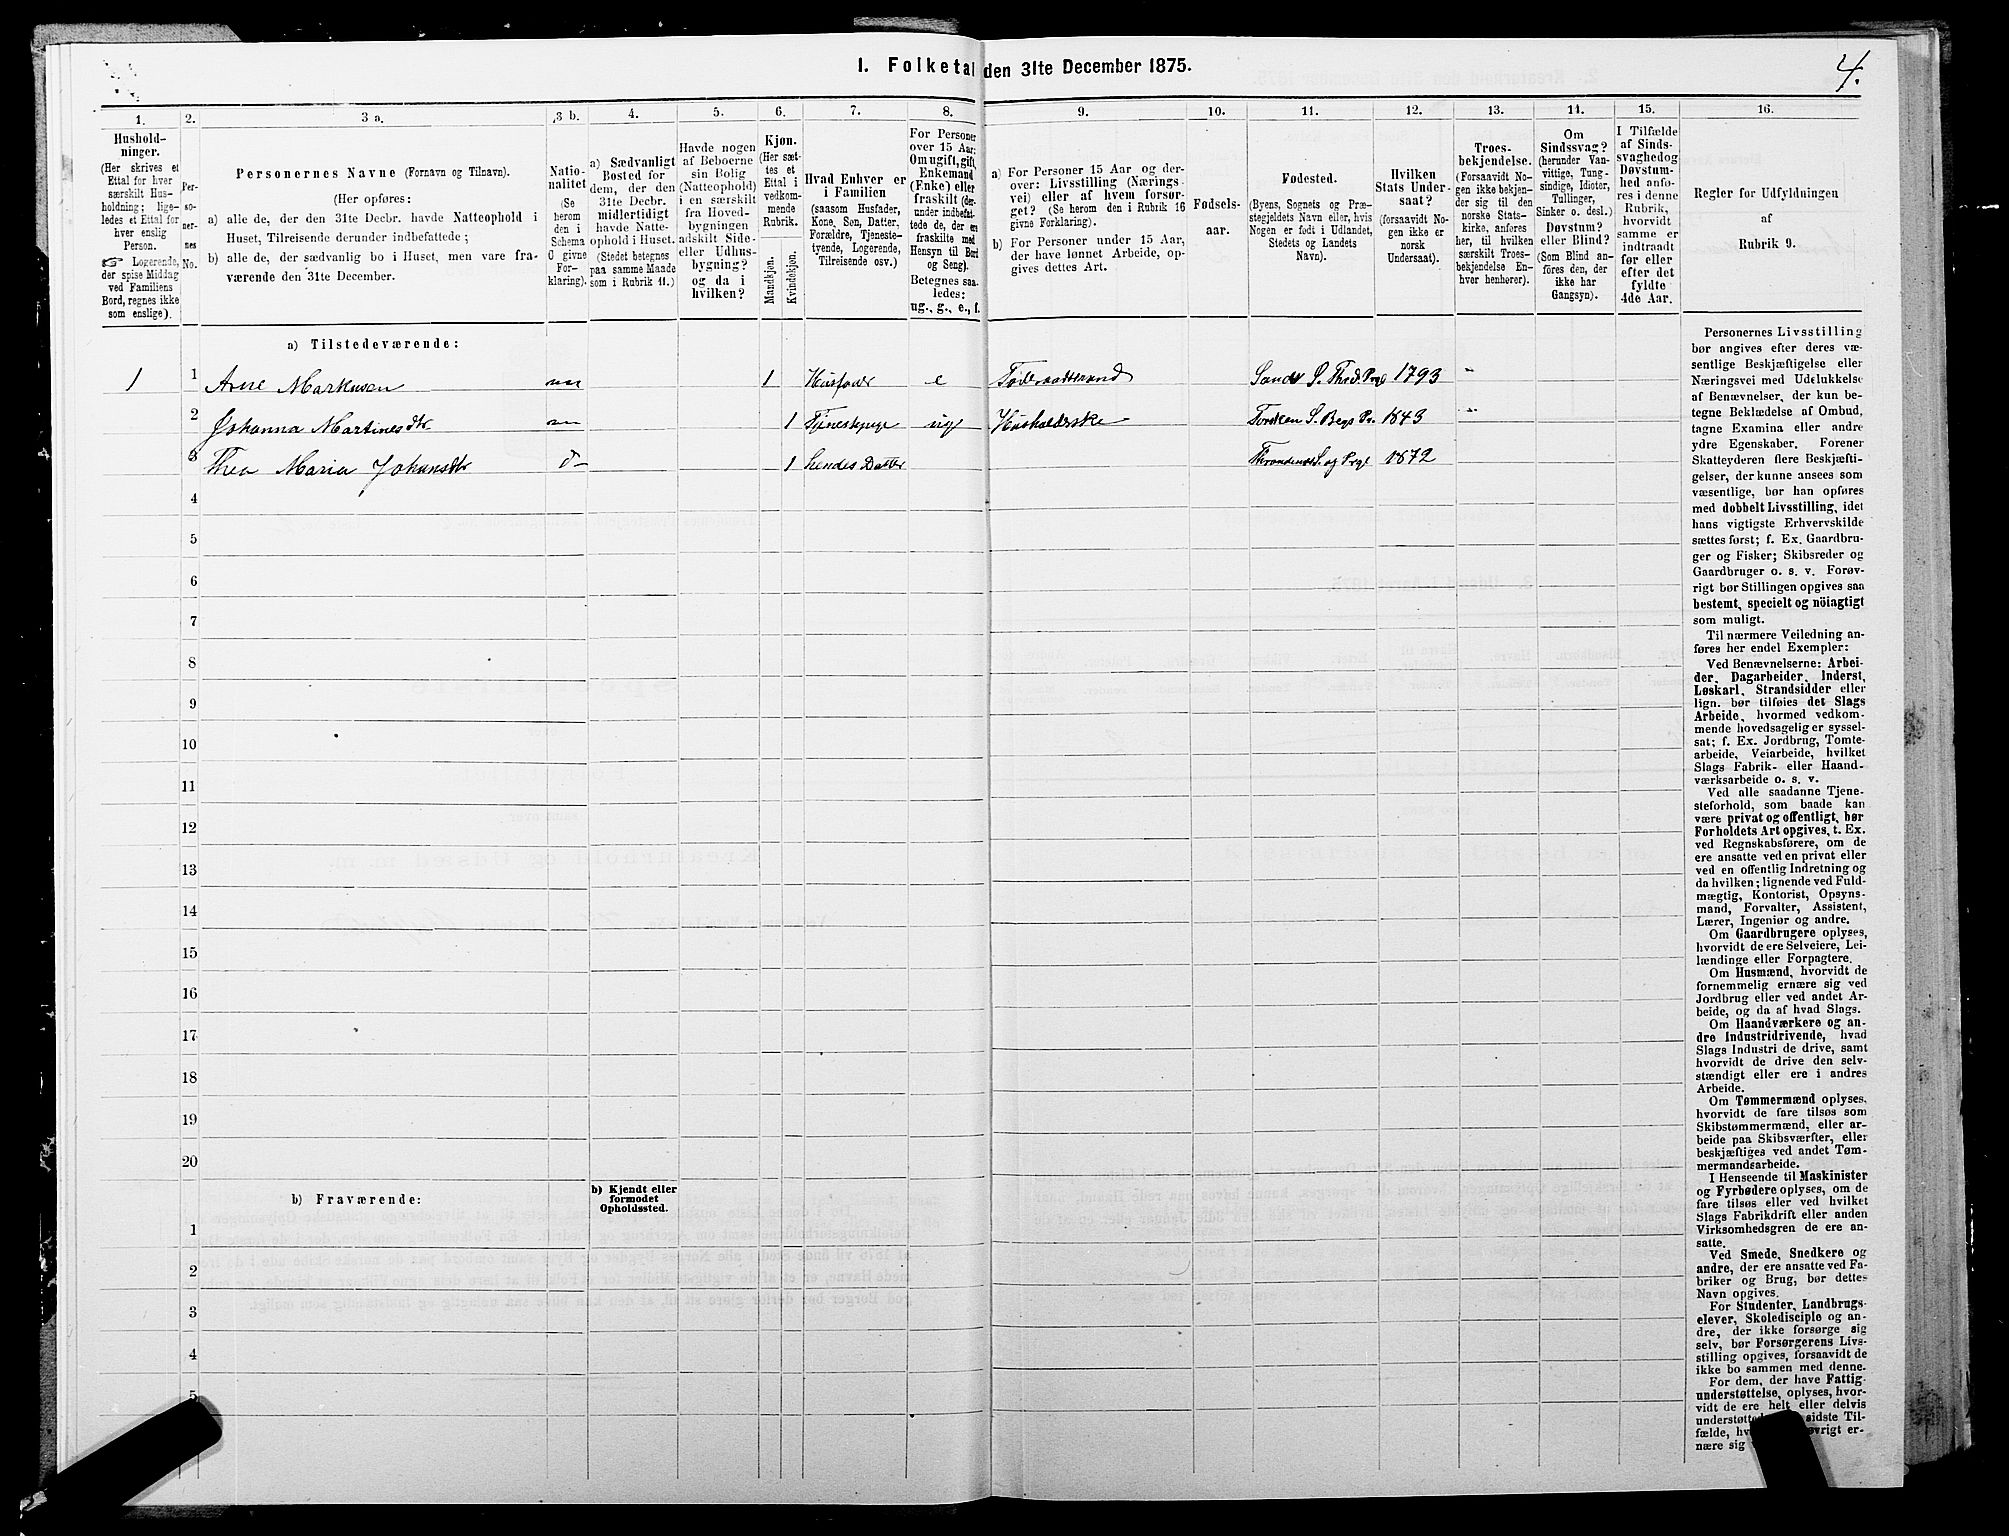 4.
1. Folketal den 31te December 1875.
1.
Hushold-
ninger.
(Her skrives et
Ettal for hver
særskilt Hus-
holdning; lige-
ledes et Ettal for
hver enslig
Person.
☞ Logerende,
der spise Middag
ved Familiens
Bord, regnes ikke
som enslige).
2.
Per-
so-
ner-
nes
No.
3 a.
Personernes Navne (Fornavn og Tilnavn).
(Her opføres:
a) alle de, der den 31te Decbr. havde Natteophold i
Huset, Tilreisende derunder indbefattede;
b) alle de, der sædvanlig bo i Huset, men vare fra-
værende den 31te December.
3 b.
Natio-
nalitet
(Se
herom
den i
Schema
O givne
For-
klaring).
4.
a) Sædvanligt
Bosted for
dem, der den
31te Decbr.
midlertidigt
havde Natte-
ophold i Huset.
(Stedet betegnes
paa samme Maade
som i Rubrik 11.)
5.
Havde nogen
af Beboerne
sin Bolig
(Natteophold)
i en særskilt
fra Hoved-
bygningen
adskilt Side-
eller Udhus-
bygning?
og da i
hvilken?
6.
Kjøn.
(Her sæt-
tes et
Ettal i
vedkom-
mende
Rubrik.
Mandkjøn.
Kvindekjøn.
7.
Hvad Enhver er
i Familien
(saasom Husfader,
Kone, Søn, Datter,
Forældre, Tjeneste-
tyende, Logerende,
Tilreisende osv.)
8.
For Personer
over 15 Aar:
Om ugift, gift,
Enkemand
(Enke) eller
fraskilt (der-
under indbefat-
tede de, der ere
fraskilte med
Hensyn til Bord
og Seng).
Betegnes saa-
ledes:
ug., g., e., f.
9.
a) For Personer 15 Aar og der-
over: Livsstilling (Nærings-
vei) eller af hvem forsør-
get? (Se herom den i Rubrik 16
givne Forklaring).
b) For Personer under 15 Aar,
der have lønnet Arbeide, op-
gives dettes Art.
10.
Fødsels-
aar.
11.
Fødested.
(Byens, Sognets og Præ-
stegjeldets Navn eller, hvis
Nogen er født i Udlandet,
Stedets og Landets
Navn).
12.
Hvilken
Stats Under-
saat?
(forsaavidt No-
gen ikke er
norsk
Undersaat).
13.
Troes-
bekjendelse.
(Forsaavidt No-
gen ikke bekjen-
der sig til den
norske Stats-
kirke, anføres
her, til hvilken
særskilt Troes-
bekjendelse En-
hver henhører).
14.
Om
Sindssvag?
(herunder Van-
vittige, Tung-
sindige, Idioter,
Tullinger,
Sinker o. desl.)
Døvstum?
eller Blind?
(Som Blind an-
føres den, der
ikke har
Gangsyn).
15.
I Tilfælde
af Sinds-
svaghed og
Døvstum-
hed anfø-
res i denne
Rubrik,
hvorvidt
samme er
indtraadt
før eller
efter det
fyldte
4de Aar.
16.
Regler for Udfyldningen
af
Rubrik 9.
a) Tilstedeværende:
1 1 Arne Markusen nn 1 Husfader e Sands S. 1793 "
2 Johanna Martinesdtr nn 1 ug Husholderske Torsken S. Bergs Pr. 1843 "
3 Thea Maria Johansdtr d– 1 hendes Datter Throndenes S. og Prgl 1872
4
5
6
7
8
9
10
11
12
13
14
15
16
17
18
19
20
b) Fraværende:
b) Kjendt eller
formodet
Opholdssted.
1
2
3
4
5
Personernes Livsstilling
bør angives efter deres væ-
sentlige Beskjæftigelse eller
Næringsvei med Udelukkelse
af Benævnelser, der kun be-
tegne Beklædelse af Ombud,
tagne Examina eller andre
ydre Egenskaber. Forener
Skatteyderen flere Beskjæfti-
gelser, der kunne ansees som
væsentlige, bør han opføres
med dobbelt Livsstilling, idet
hans vigtigste Erhvervskilde
sættes først; f. Ex. Gaardbru-
ger og Fisker; Skibsreder og
Gaardbruger o. s. v. Forøv-
rigt bør Stillingen opgives saa
bestemt, specielt og nöiagtigt
som muligt.
Til nærmere Veiledning an-
føres her endel Exempler:
Ved Benævnelserne: Arbei-
der, Dagarbeider, Inderst,
Løskarl, Strandsidder eller
lign. bør tilføies det Slags
Arbeide, hvormed vedkom-
mende hovedsagelig er syssel-
sat; f. Ex. Jordbrug, Tomte-
arbeide, Veiarbeide, hvilket
Slags Fabrik- eller Haand-
værksarbeide o. s. v.
Ved alle saadanne Tjene-
steforhold, som baade kan
være privat og offentligt, bør
Forholdets Art opgives, t. Ex.
ved Regnskabsførere, om de
ere ansatte ved en privat eller
ved en offentlig Indretning og
da hvilken; lignende ved Fuld-
mægtig, Kontorist, Opsyns-
mand, Forvalter, Assistent,
Lærer, Ingeniør og andre.
Om Gaardbrugere oplyses,
hvorvidt de ere Selveiere, Lei-
lændinge eller Forpagtere.
Om Husmænd, hvorvidt de
fornemmelig ernære sig ved
Jordbrug eller ved andet Ar-
beide, og da af hvad Slags.
Om Haandværkere og an-
dre Industridrivende, hvad
Slags Industri de drive, samt
hvorvidt de drive den selv-
stændigt eller ere i andres
Arbeide.
Om Tømmermænd oplyses,
hvorvidt de fare tilsøs som
Skibstømmermænd, eller ar-
beide paa Skibsværfter, eller
beskjæftiges ved andet Tøm-
mermandsarbeide.
I Henseende til Maskinister
og Fyrbødere oplyses, om de
fare tilsøs eller ved hvilket
Slags Fabrikdrift eller anden
Virksomhedsgren de ere an-
satte.
Ved Smede, Snedkere og
andre, der ere ansatte ved Fa-
briker og Brug, bør dettes
Navn opgives.
For Studenter, Landbrugs-
elever, Skoledisciple og an-
dre, der ikke forsørge sig
selv, bør Forsørgerens Livs-
stilling opgives, forsaavidt de
ikke bo sammen med denne.
For dem, der have Fattig-
understøttelse, oplyses, hvor-
vidt de ere helt eller delvis
sidste Til-
fælde, øvrigt er-
nære sig